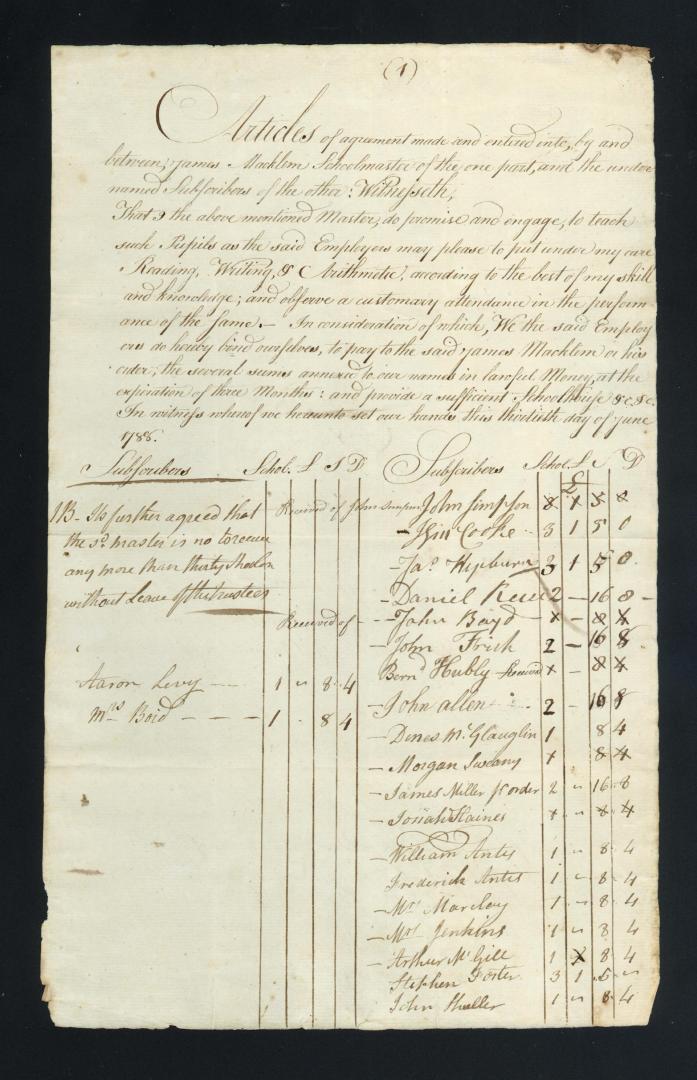 (1)
Articles of agreement made and entred into, by and
between, James Macklem Schoolmaster of the one part, and the under
named Subscribers of the other: Witnesseth,
That I the above mentioned Master, do promise and engage, to teach
such Pupils as the said Employers may please to put under my care
Reading, Writing, & Arithmetic, according to the best of my skill
and knowledge; and observe a customary attendance in the perform-
ance of the same. – In consideration of which, We the said Employ
ers do hereby bind ourselves, to pay to the said James Macklem or his
order, the several sums annexed to our names in lawful Money, at the
expiration of three Months: and provide a sufficient Schoolhouse &c &c.
In witness whereof we hereunto set our hands this thirtieth day of June
1788.
Subscribers Schol. L S D
NB – Its further agreed that
the sd. master is no to receive
any more than thirty Scholors
without Leave of the trustees
Aaron Levy — 1 " 8 4
Mrs Boid — — — 1 . 8 4
Subscribers Schol. L S D
£
Received of John Simpson John Simpson 1 5
Cooke 3 1 5 0
Jas. Hepburn 3 1 5 0
Daniel 2 – 16 8 –
Received of – John Boyd – x – 8 x
John Frish 2 – 16 8
Bernd Hubly Received x – 8 x
John allen 2 – 16 8
Denes Mc.Glauglin 1 8 4
Morgan Sweany x 8 4
James Miller pr order 2 " 16 8
Josiah Haines x " 8 4
William Antis 1 " 8 4
Frederick Antis 1 " 8 4
Mrs Marcley 1 " 8 4
Mrs Jenkins 1 " 8 4
Arthur McGill 1 x 8 4
Stephen Foster 3 1 5 "
John Shaller 1 " 8 4